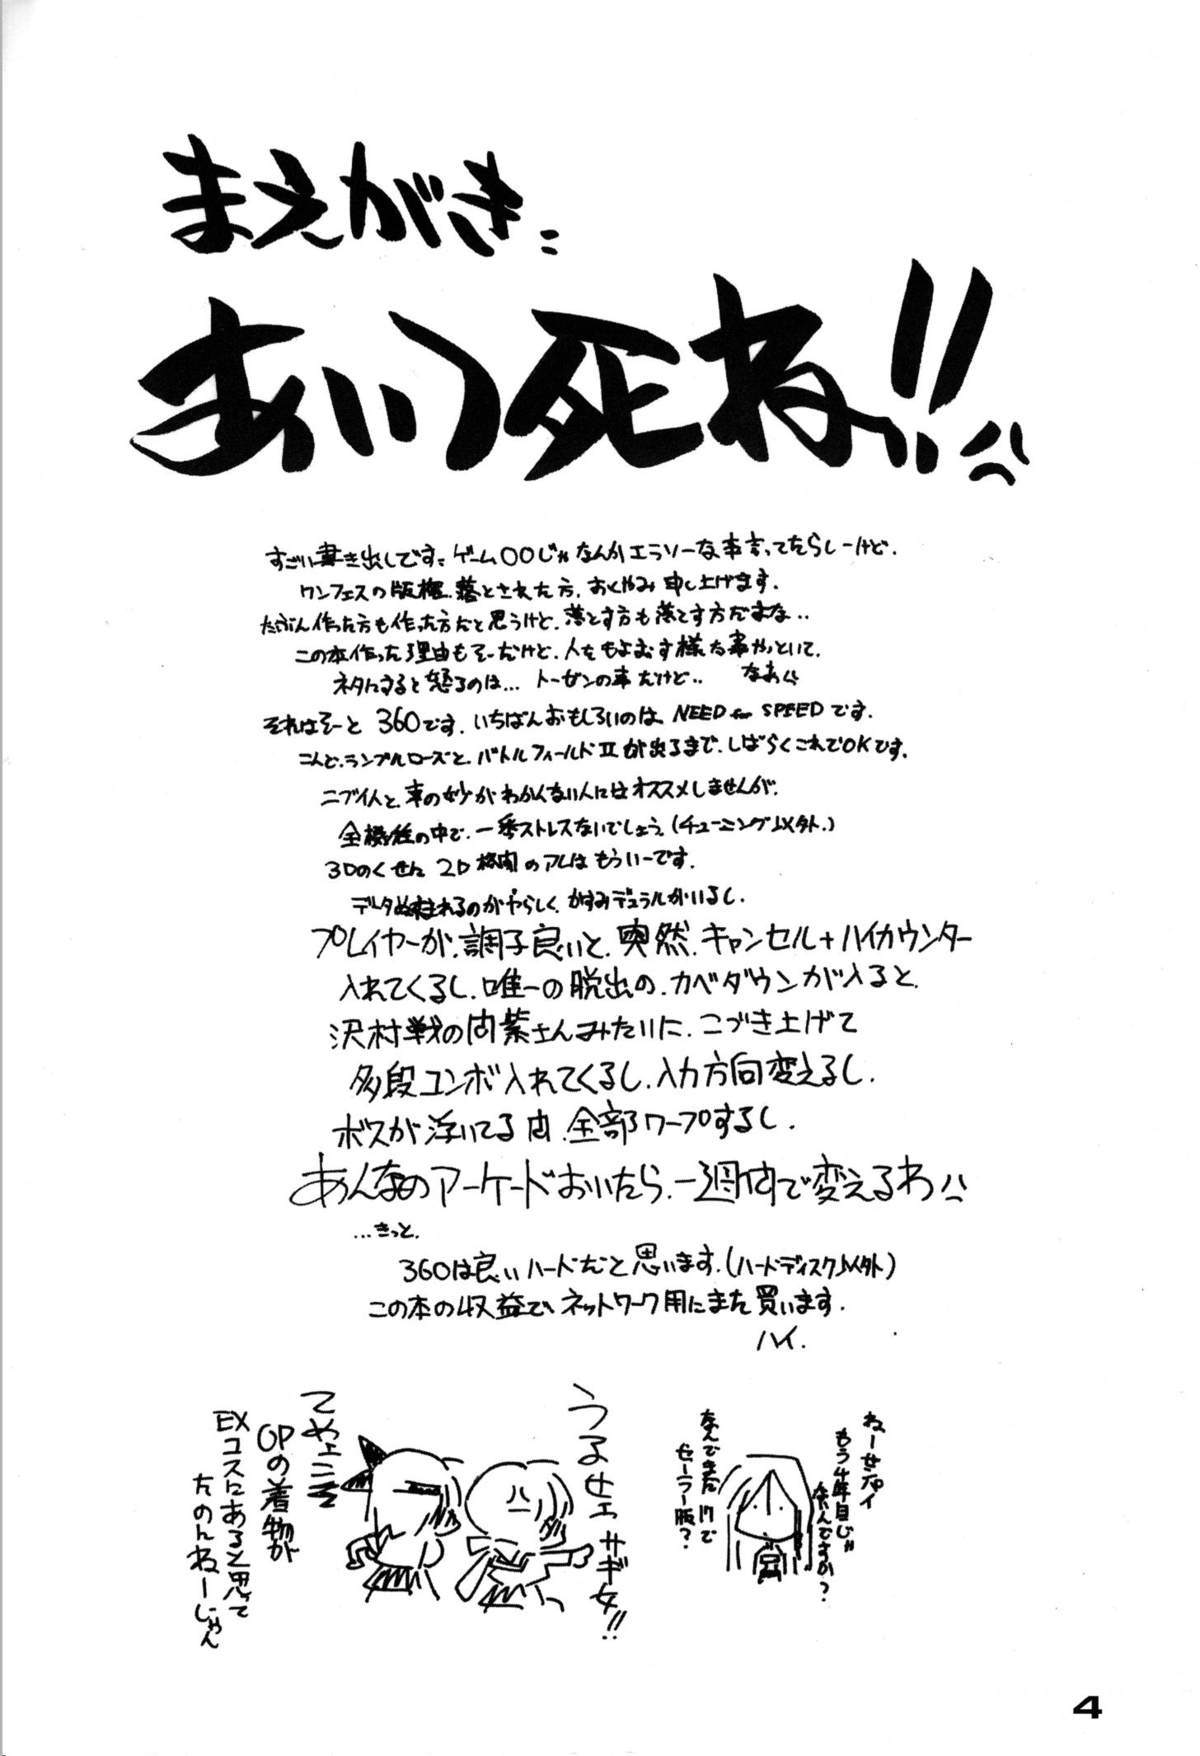 まえがき
あいつ死ね!!
すごい書き出しです。ゲーム○○じゃなんかエラソーな事言ってたらしーけど、
ワンフェスの版権、落とされた方、おくやみ申し上げます。
たぶん作った方も作った方だと思うけど、落とす方も落とす方だよな..
この本作った理由もそーだけど、人をもよおす様な事やっといて、
ネタにすると怒るのは... トーゼンの事だけど.. なあ
それはそーと 360です。いちばんおもしろいのは、NEED for SPEEDです。
こんど、ランブルローズと、バトルフィールドIIが出るまで、しばらくこれでOKです。
ニブイ人と、車の妙がわかんない人にはオススメしませんが、
全機種の中で、一番ストレスないでしょう。(チューニング以外。)
3Dのくせに 2D格闘のアレはもういーです。
データぬすまれるのがやらしく、かすみデュラルがいるし、
プレイヤーが、調子良いと、突然、キャンセル+ハイカウンター
入れてくるし、唯一の脱出の、カベダウンが入ると、
沢村戦の向紫さんみたいに、こづき上げて
多段コンボ入れてくるし、入力方向変えるし、
ボスが浮いてる内、全部ワープするし、
あんなのアーケードおいたら、一週間で変えるわ
...きっと、
360は良いハードだと思います。(ハードディスク以外)
この本の収益で、ネットワーク用にまた買います。
ハイ.
ねーせんパイ
もう4年目じゃ
ないんですか?
なんでまだ 17で
セーラー服?
うるせェ サギ女!!
てめェ
OPの着物が
EXコスにあると思って
たのんねーじゃん
4